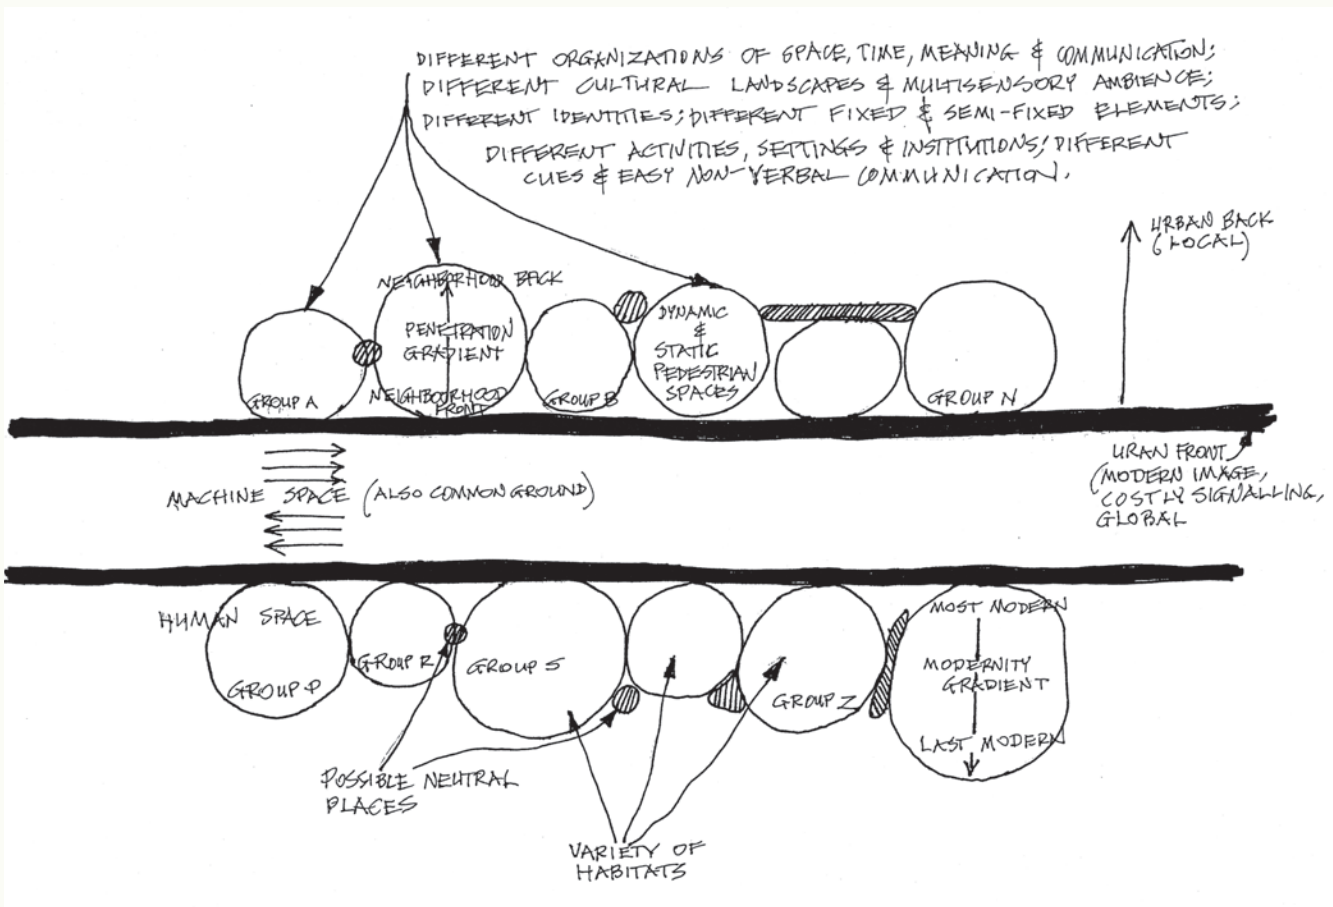 DIFFERENT ORGANIZATIONS OF SPACE, TIME, MEANING & COMMUNICATION;
DIFFERENT CULTURAL LANDSCAPES & MULTISENSORY AMBIENCE;
DIFFERENT IDENTITIES; DIFFERENT FIXED & SEMI-FIXED ELEMENTS;
DIFFERENT ACTIVITIES, SETTINGS & INSTITUTIONS; DIFFERENT
CUES & EASY NON-VERBAL COMMUNICATION.
URBAN BACK
(LOCAL)
NEIGHBORHOOD BACK
PENETRATION
GRADIENT
NEIGHBOURHOOD
FRONT
DYNAMIC
&
STATIC
PEDESTRIAN
SPACES
GROUP A
GROUP B
GROUP N
URAN FRONT
(MODERN IMAGE,
COSTLY SIGNALLING,
GLOBAL
MACHINE SPACE (ALSO COMMON GROUND)
HUMAN SPACE
GROUP P
GROUP R
GROUP S
GROUP Z
MOST MODERN
MODERNITY
GRADIENT
LAST MODERN
POSSIBLE NEUTRAL
PLACES
VARIETY OF
HABITATS